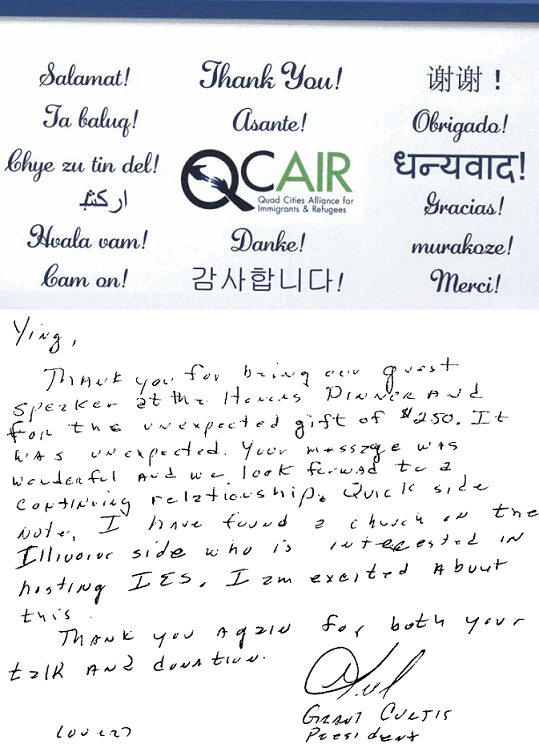 Salamat!
Thank You!
谢谢！
Ta baluq!
Asante!
Obrigado!
Chye zu tin del!
QCAIR
Quad Cities Alliance for
Immigrants & Refugees
धन्यवाद!
Gracias!
Hvala vam!
Danke!
murakoze!
Cam on!
감사합니다!
Merci!
Ying,
Thank you for being our guest
speaker at the Honors Dinner and
for the unexpected gift of $250. It
was unexpected. Your message was
wonderful and we look forward to a
continuing relationship. Quick side
note, I have found a church on the
Illinois side who is interested in
hosting IES. I am excited about
this.
Thank you again for both your
talk and donation.
Grant Curtis
President